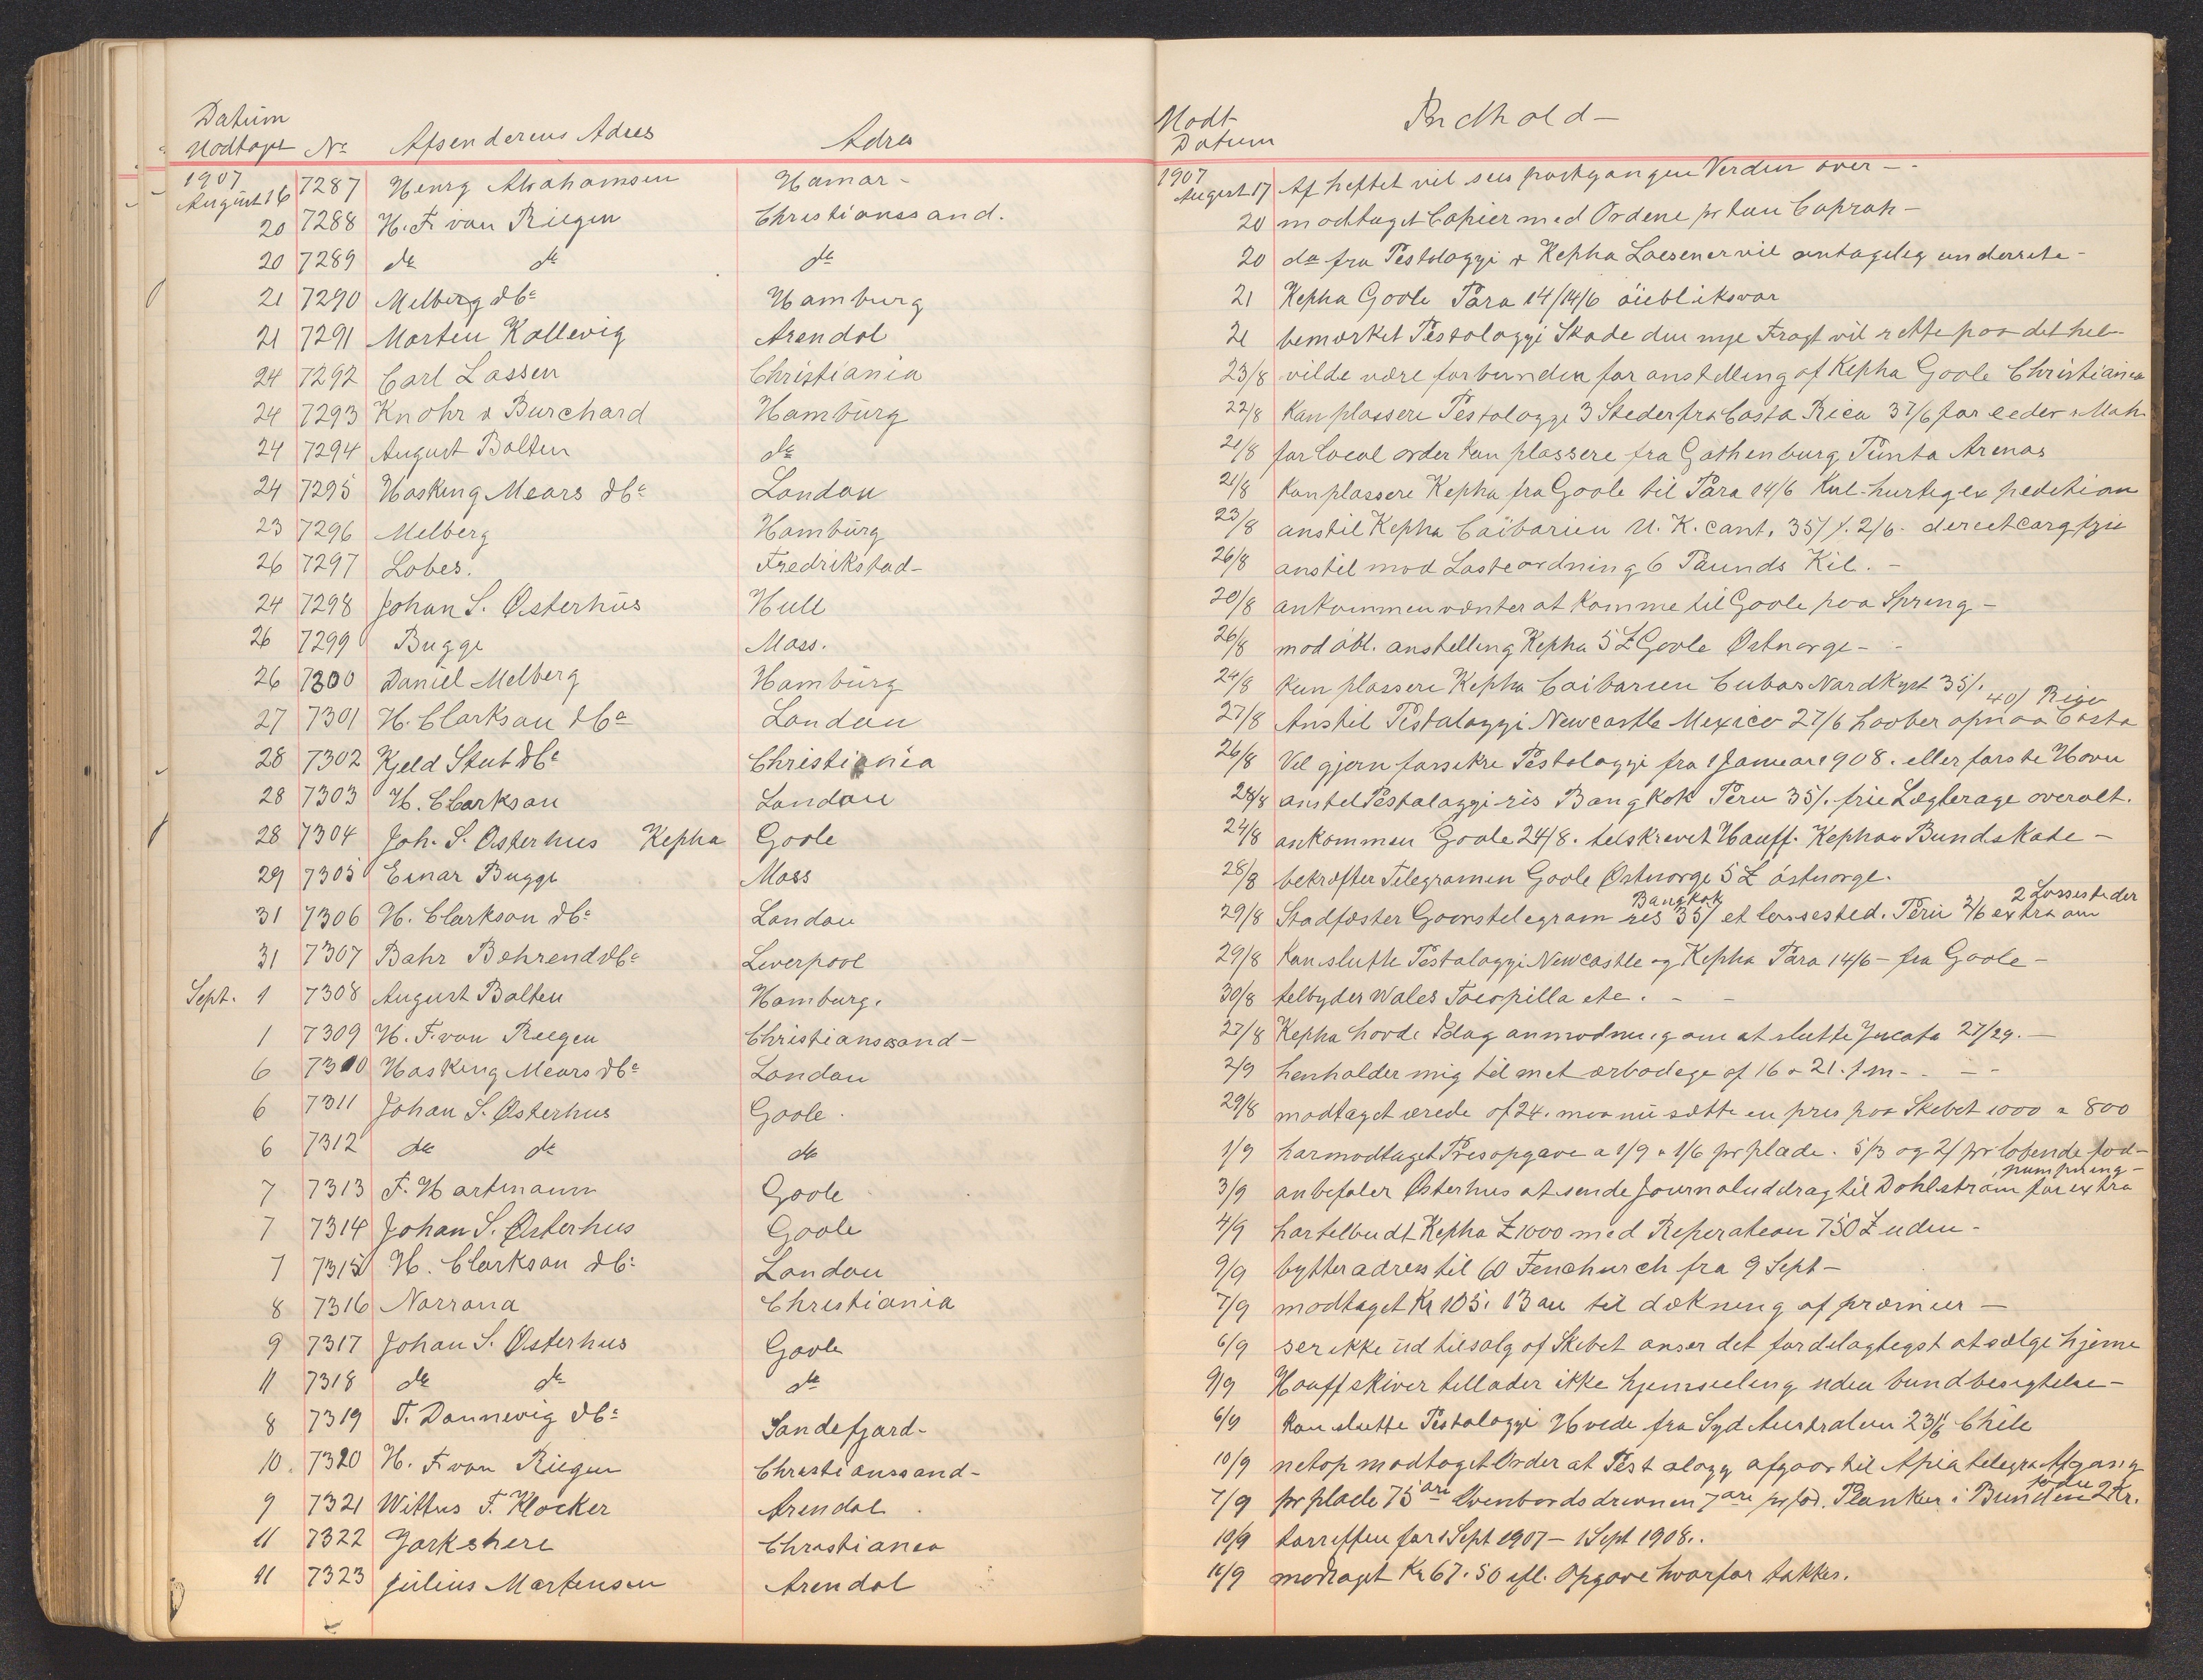 Datum
Modtaget No Afsenderens Adres Adres
1907
August 16 7287 Henry Abrahamsen Hamar -
20 7288 H. F. van Riegen Christianssand.
20 7289 do do do
21 7290 Melberg & Co Hamburg
21 7291 Morten Kallevig Arendal
24 7292 Carl Lassen Christiania
24 7293 Knohr & Burchard Hamburg
24 7294 August Bolten do
24 7295 Hasking Mears & Co London
23 7296 Melberg Hamburg
26 7297 Lobes. Fredrikstad -
24 7298 Johan S. Østerhus Hull
26 7299 Bugge Moss.
26 7300 Daniel Melberg Hamburg
27 7301 H. Clarkson & Co London
28 7302 Kjeld Stub & Co Christiania
28 7303 H. Clarkson London
28 7304 Joh. S. Østerhus Kepha Goole
29 7305 Einar Bugge Moss
31 7306 H. Clarkson & Co London
31 7307 Bahr Behrend & Co Liverpool
Sept. 1 7308 August Bolten Hamburg.
1 7309 H. F. van Riegen Christianssand -
6 7310 Hasking Mears & Co London
6 7311 Johan S. Østerhus Goole.
6 7312 do do do
7 7313 F. Hartmann Goole
7 7314 Johan S. Østerhus Goole
7 7315 H. Clarkson & Co London
8 7316 Norrøna Christiania
9 7317 Johan S. Østerhus Goole
11 7318 do do do
8 7319 T. Dannevig & Co Sandefjord -
10 7320 H. F. van Riegen Christianssand -
9 7321 Wittus F. Klocker Arendal
11 7322 Yorkshire Christiania
11 7323 Julius Martensen Arendal
Modt Indhold -
Datum
1907
August 17 Af heftet vil sees postgangen Verden over -
20 modtaget Copier med Ordene pr
20 do fra Pestalozzi & Kepha Læsener vil antagelig underrette -
21 Kepha Goole Para 14/ 14/6 øiebliksvar
21 bemærket Pestalozzi Skade den nye Fragt vil rette paa det hele -
23/8 vilde være forbunden for anstilling af Kepha Goole Christiania
22/8 Kan plassere Pestalozzi 3 Steder fra Costa Rica 37/6 for ceder & Mah.
21/8 for Local order kan plassere fra Gothenburg Punta Arenas
21/8 Kan plassere Kepha fra Goole til Para 14/6 Kul - hurtig expedition
23/8 anstil Kepha Caibarien U.K. cont. 35/ /. 2/6 - direct
26/8 anstil mod Lasteordning 6 Paunds Kil. -
20/8 ankommen venter at komme til Goole paa Spring -
26/8 mod anstelling Kepha 5£ Goole Østnorge -
24/8 Kan plassere Kepha Caibarien Cubas Nordkyst 35/.
40/ Rica
27/8 Anstil Pestalozzi Newcastle Mexico 27/6 haaber opnaa Costa
26/8 Vil gjern forsikre Pestalozzi fra 1 Januar 1908. eller første Havn
28/8 anstil Pestalozzi ris Bangkok Peru 35/. frie Lægterage overalt.
24/8 ankommen Goole 24/8. tilskrevet Hauff. Kephas Bundskade -
28/8 bekræfter Telegramen Goole Østnorge 5£ østnorge.
Bangkok 2 Lossesteder
29/8 Stadfæster telegram ris 35/ et lossested. Peru 2/6 extra om
29/8 Kan slutte Pestalozzi Newcastle og Kepha Para 14/6 - fra Goole -
30/8 telbyder Wales Tocopilla etc. - -
27/8 Kepha havde Idag anmodning om at slutte 27/29. -
2/9 henholder mig til mit ærbødige af 16 & 21. f m - -
29/8 modtaget ærede af 24. maa nu sætte en pris paa Skibet 1000 a 800
1/9 har modtaget Prisopgave a 1/9 & 1/6 pr plade. 5/3 og 2/ pr løbende fod -
pumpning -
3/9 anbefaler Østerhus at sende Journaluddrag til Dahlstrøm for extra
4/9 har telbudt Kepha £1000 med Reperation 750£ uden -
9/9 bytter adress til 60 Fenchurch fra 9 Sept -
7/9 modtaget Kr 105. 13 øre til dækning af præmier -
6/9 ser ikke ud til salg af Skibet anser det fordelagtigst at sælge hjeme
9/9 Hauff skiver tillader ikke hjemseiling uden bundbesigtelse -
6/9 Kan slutte Pestalozzi Hvede fra Syd Australien 23/6 Chile
10/9 netop modtaget Order at Pestalozzi afgaar til Apia Afgang
7/9 pr plade 75 øre drivnen 7 øre pr fod. Planker i Bunden 2 Kr.
10/9 tarriffen for 1 Sept 1907 - 1 Sept 1908.
11/9 modtaget Kr 67.50 ifl. Opgave hvorfor takkes.